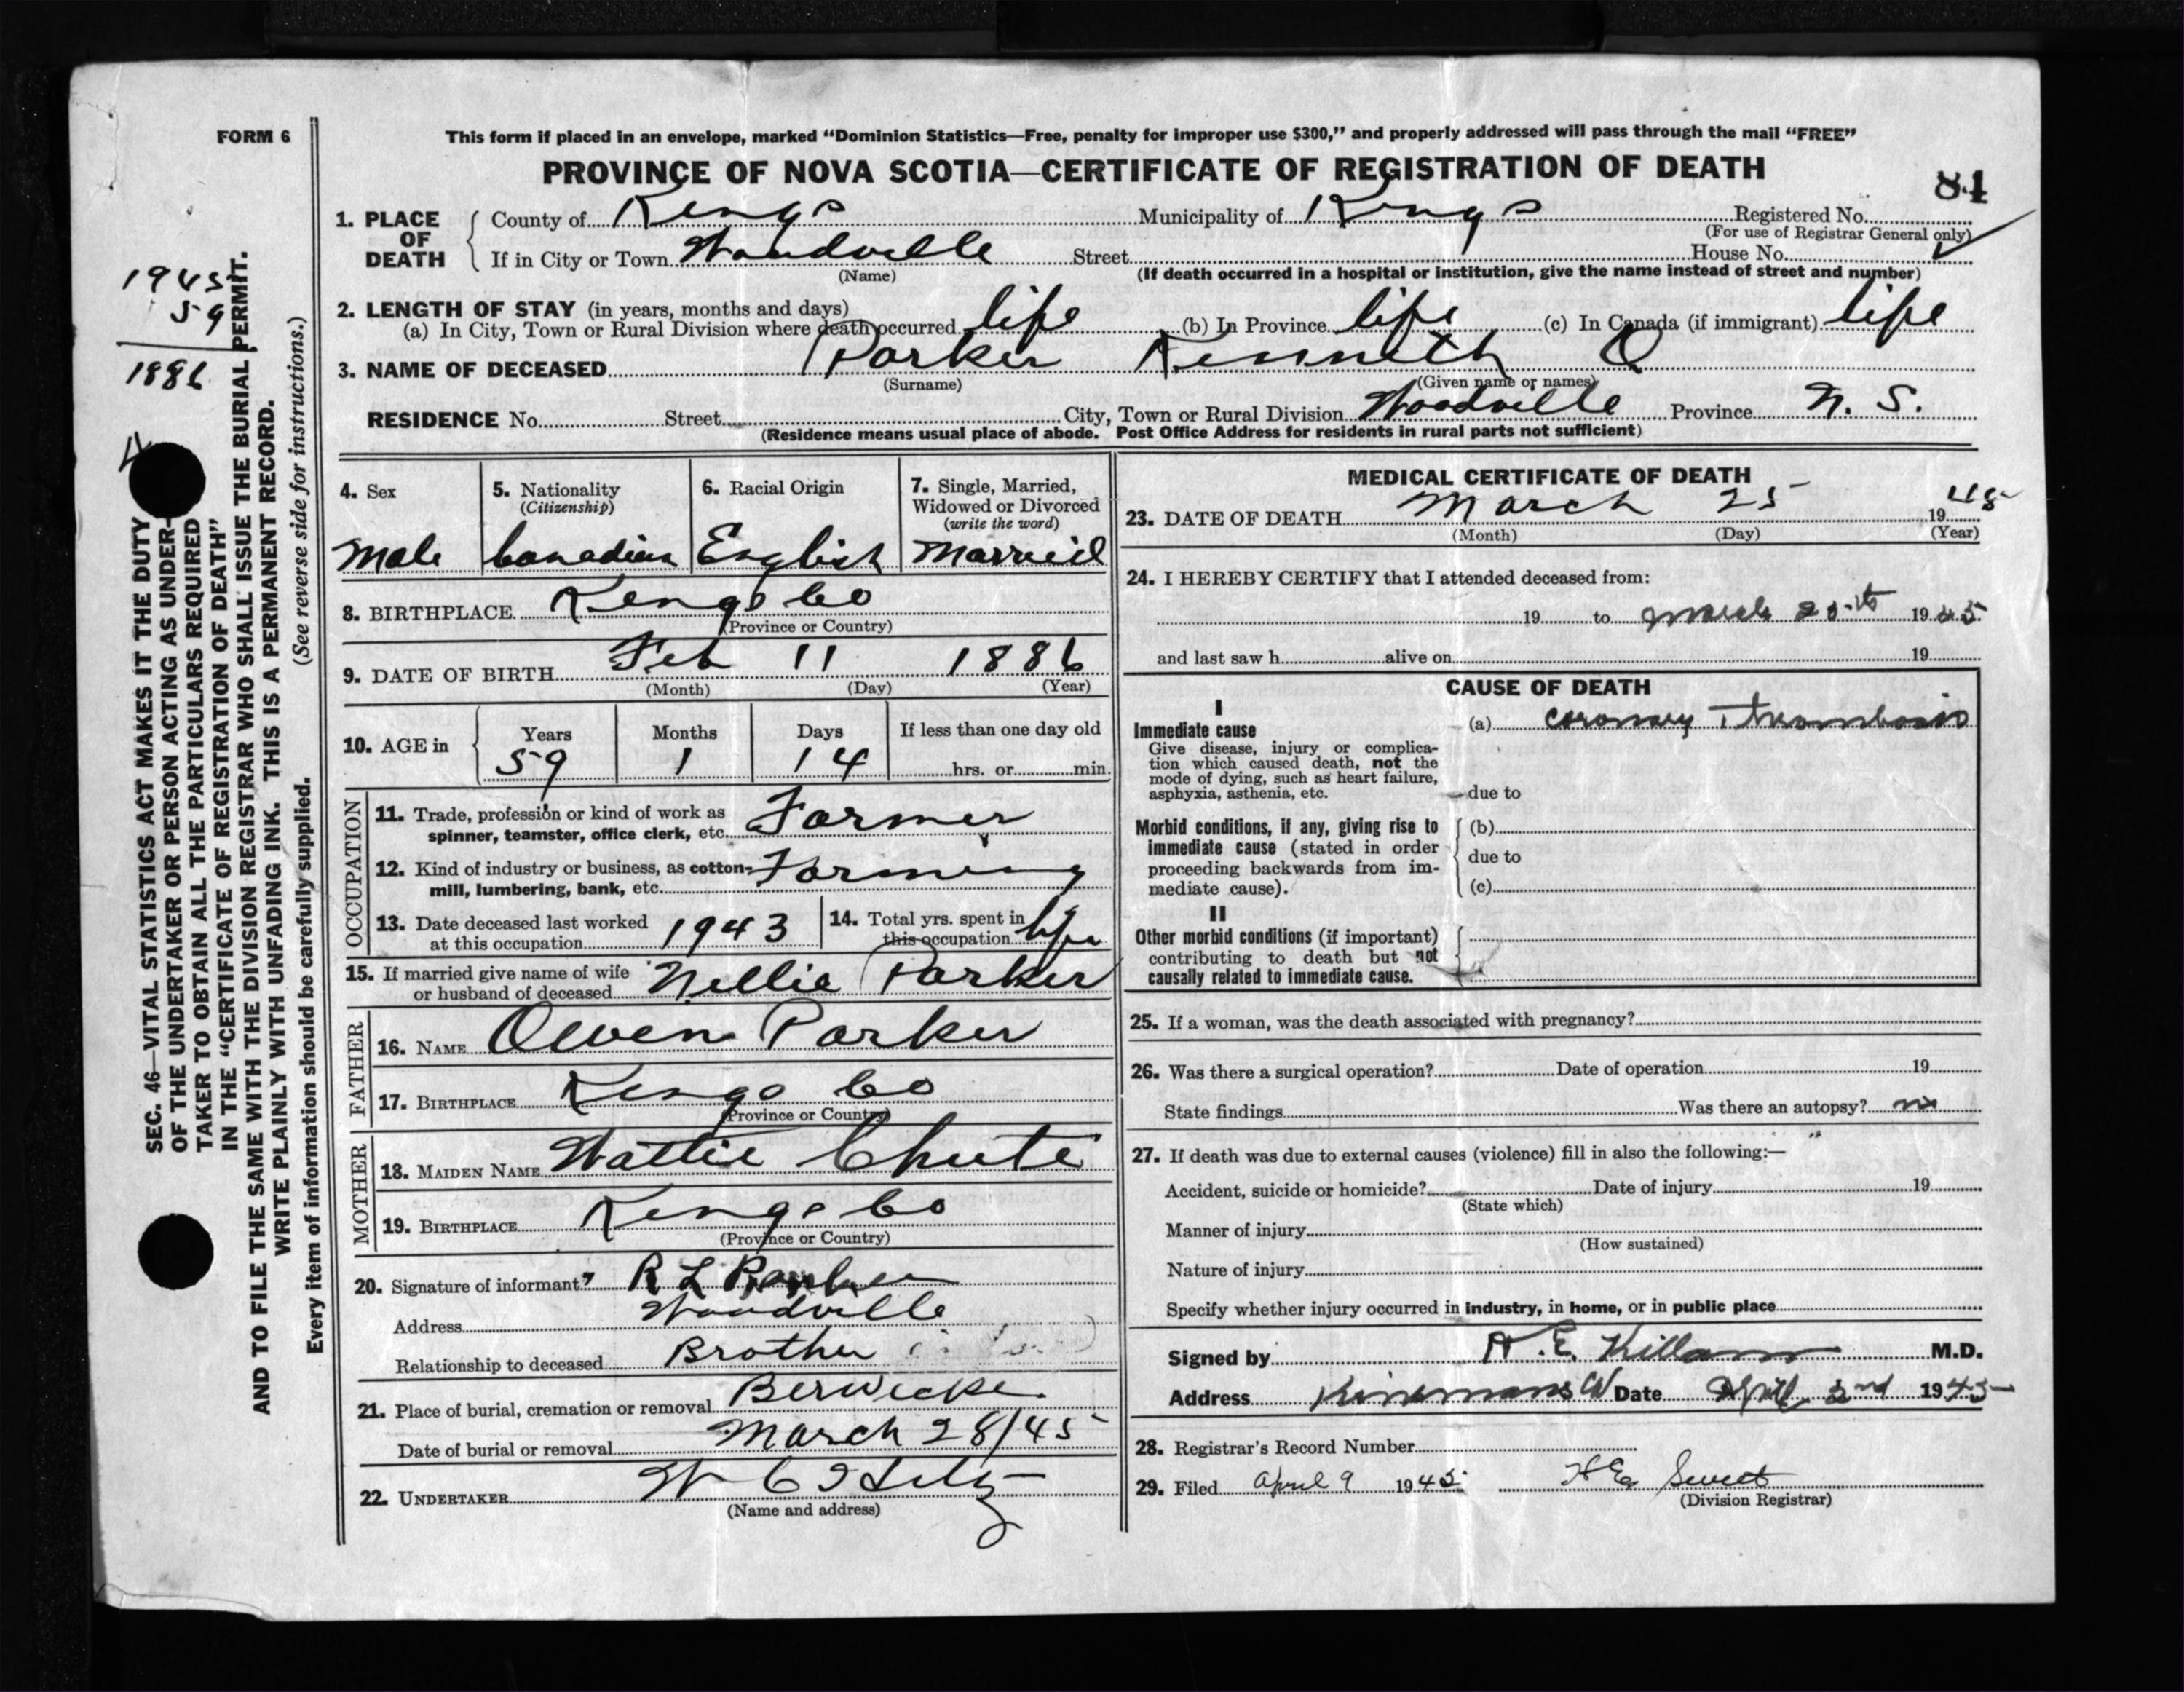 FORM 6
This form if placed in an envelope, marked “Dominion Statistics—Free, penalty for improper use $300,” and properly addressed will pass through the mail “FREE”
PROVINCE OF NOVA SCOTIA—CERTIFICATE OF REGISTRATION OF DEATH
84
1. PLACE OF DEATH County of Kings Municipality of Kings Registered No.
(For use of Registrar General only)
If in City or Town Woodville Street House No.
(Name) (If death occurred in a hospital or institution, give the name instead of street and number)
2. LENGTH OF STAY (in years, months and days)
(a) In City, Town or Rural Division where death occurred life (b) In Province life (c) In Canada (if immigrant) life
3. NAME OF DECEASED Parker Kenneth O
(Surname) (Given name or names)
RESIDENCE No. Street City, Town or Rural Division Woodville Province N. S.
(Residence means usual place of abode. Post Office Address for residents in rural parts not sufficient)
1945
59
1886
SEC. 46—VITAL STATISTICS ACT MAKES IT THE DUTY
OF THE UNDERTAKER OR PERSON ACTING AS UNDER-
TAKER TO OBTAIN ALL THE PARTICULARS REQUIRED
IN THE “CERTIFICATE OF REGISTRATION OF DEATH”
AND TO FILE THE SAME WITH THE DIVISION REGISTRAR WHO SHALL ISSUE THE BURIAL PERMIT.
WRITE PLAINLY WITH UNFADING INK. THIS IS A PERMANENT RECORD.
Every item of information should be carefully supplied. (See reverse side for instructions.)
4. Sex 5. Nationality 6. Racial Origin 7. Single, Married,
(Citizenship) Widowed or Divorced
(write the word)
Male Canadian English Married
8. BIRTHPLACE Kings Co
(Province or Country)
9. DATE OF BIRTH Feb 11 1886
(Month) (Day) (Year)
10. AGE in Years Months Days If less than one day old
59 1 14 hrs. or min.
OCCUPATION
11. Trade, profession or kind of work as
spinner, teamster, office clerk, etc. Farmer
12. Kind of industry or business, as cotton-
mill, lumbering, bank, etc. Farming
13. Date deceased last worked
at this occupation 1943
14. Total yrs. spent in
this occupation life
15. If married give name of wife
or husband of deceased Nellie Parker
FATHER
16. NAME Owen Parker
17. BIRTHPLACE Kings Co
(Province or Country)
MOTHER
18. MAIDEN NAME Hattie Chute
19. BIRTHPLACE Kings Co
(Province or Country)
20. Signature of informant R L Parker
Address Woodville
Relationship to deceased Brother
21. Place of burial, cremation or removal Berwicke
Date of burial or removal March 28/45
22. UNDERTAKER
(Name and address)
MEDICAL CERTIFICATE OF DEATH
23. DATE OF DEATH March 25 1945
(Month) (Day) (Year)
24. I HEREBY CERTIFY that I attended deceased from:
19 to March 25th 1945
and last saw h alive on 19
CAUSE OF DEATH
I
Immediate cause (a) coronary Thrombosis
Give disease, injury or complica-
tion which caused death, not the
mode of dying, such as heart failure,
asphyxia, asthenia, etc. due to
Morbid conditions, if any, giving rise to (b)
immediate cause (stated in order due to
proceeding backwards from im-
mediate cause). (c)
II
Other morbid conditions (if important)
contributing to death but not
causally related to immediate cause.
25. If a woman, was the death associated with pregnancy?
26. Was there a surgical operation? Date of operation 19
State findings Was there an autopsy? no
27. If death was due to external causes (violence) fill in also the following:—
Accident, suicide or homicide? Date of injury 19
(State which)
Manner of injury
(How sustained)
Nature of injury
Specify whether injury occurred in industry, in home, or in public place
Signed by H. E. Killam M.D.
Address Kinsmans Date April 2nd 1945
28. Registrar's Record Number
29. Filed April 9 1945 Sweet
(Division Registrar)